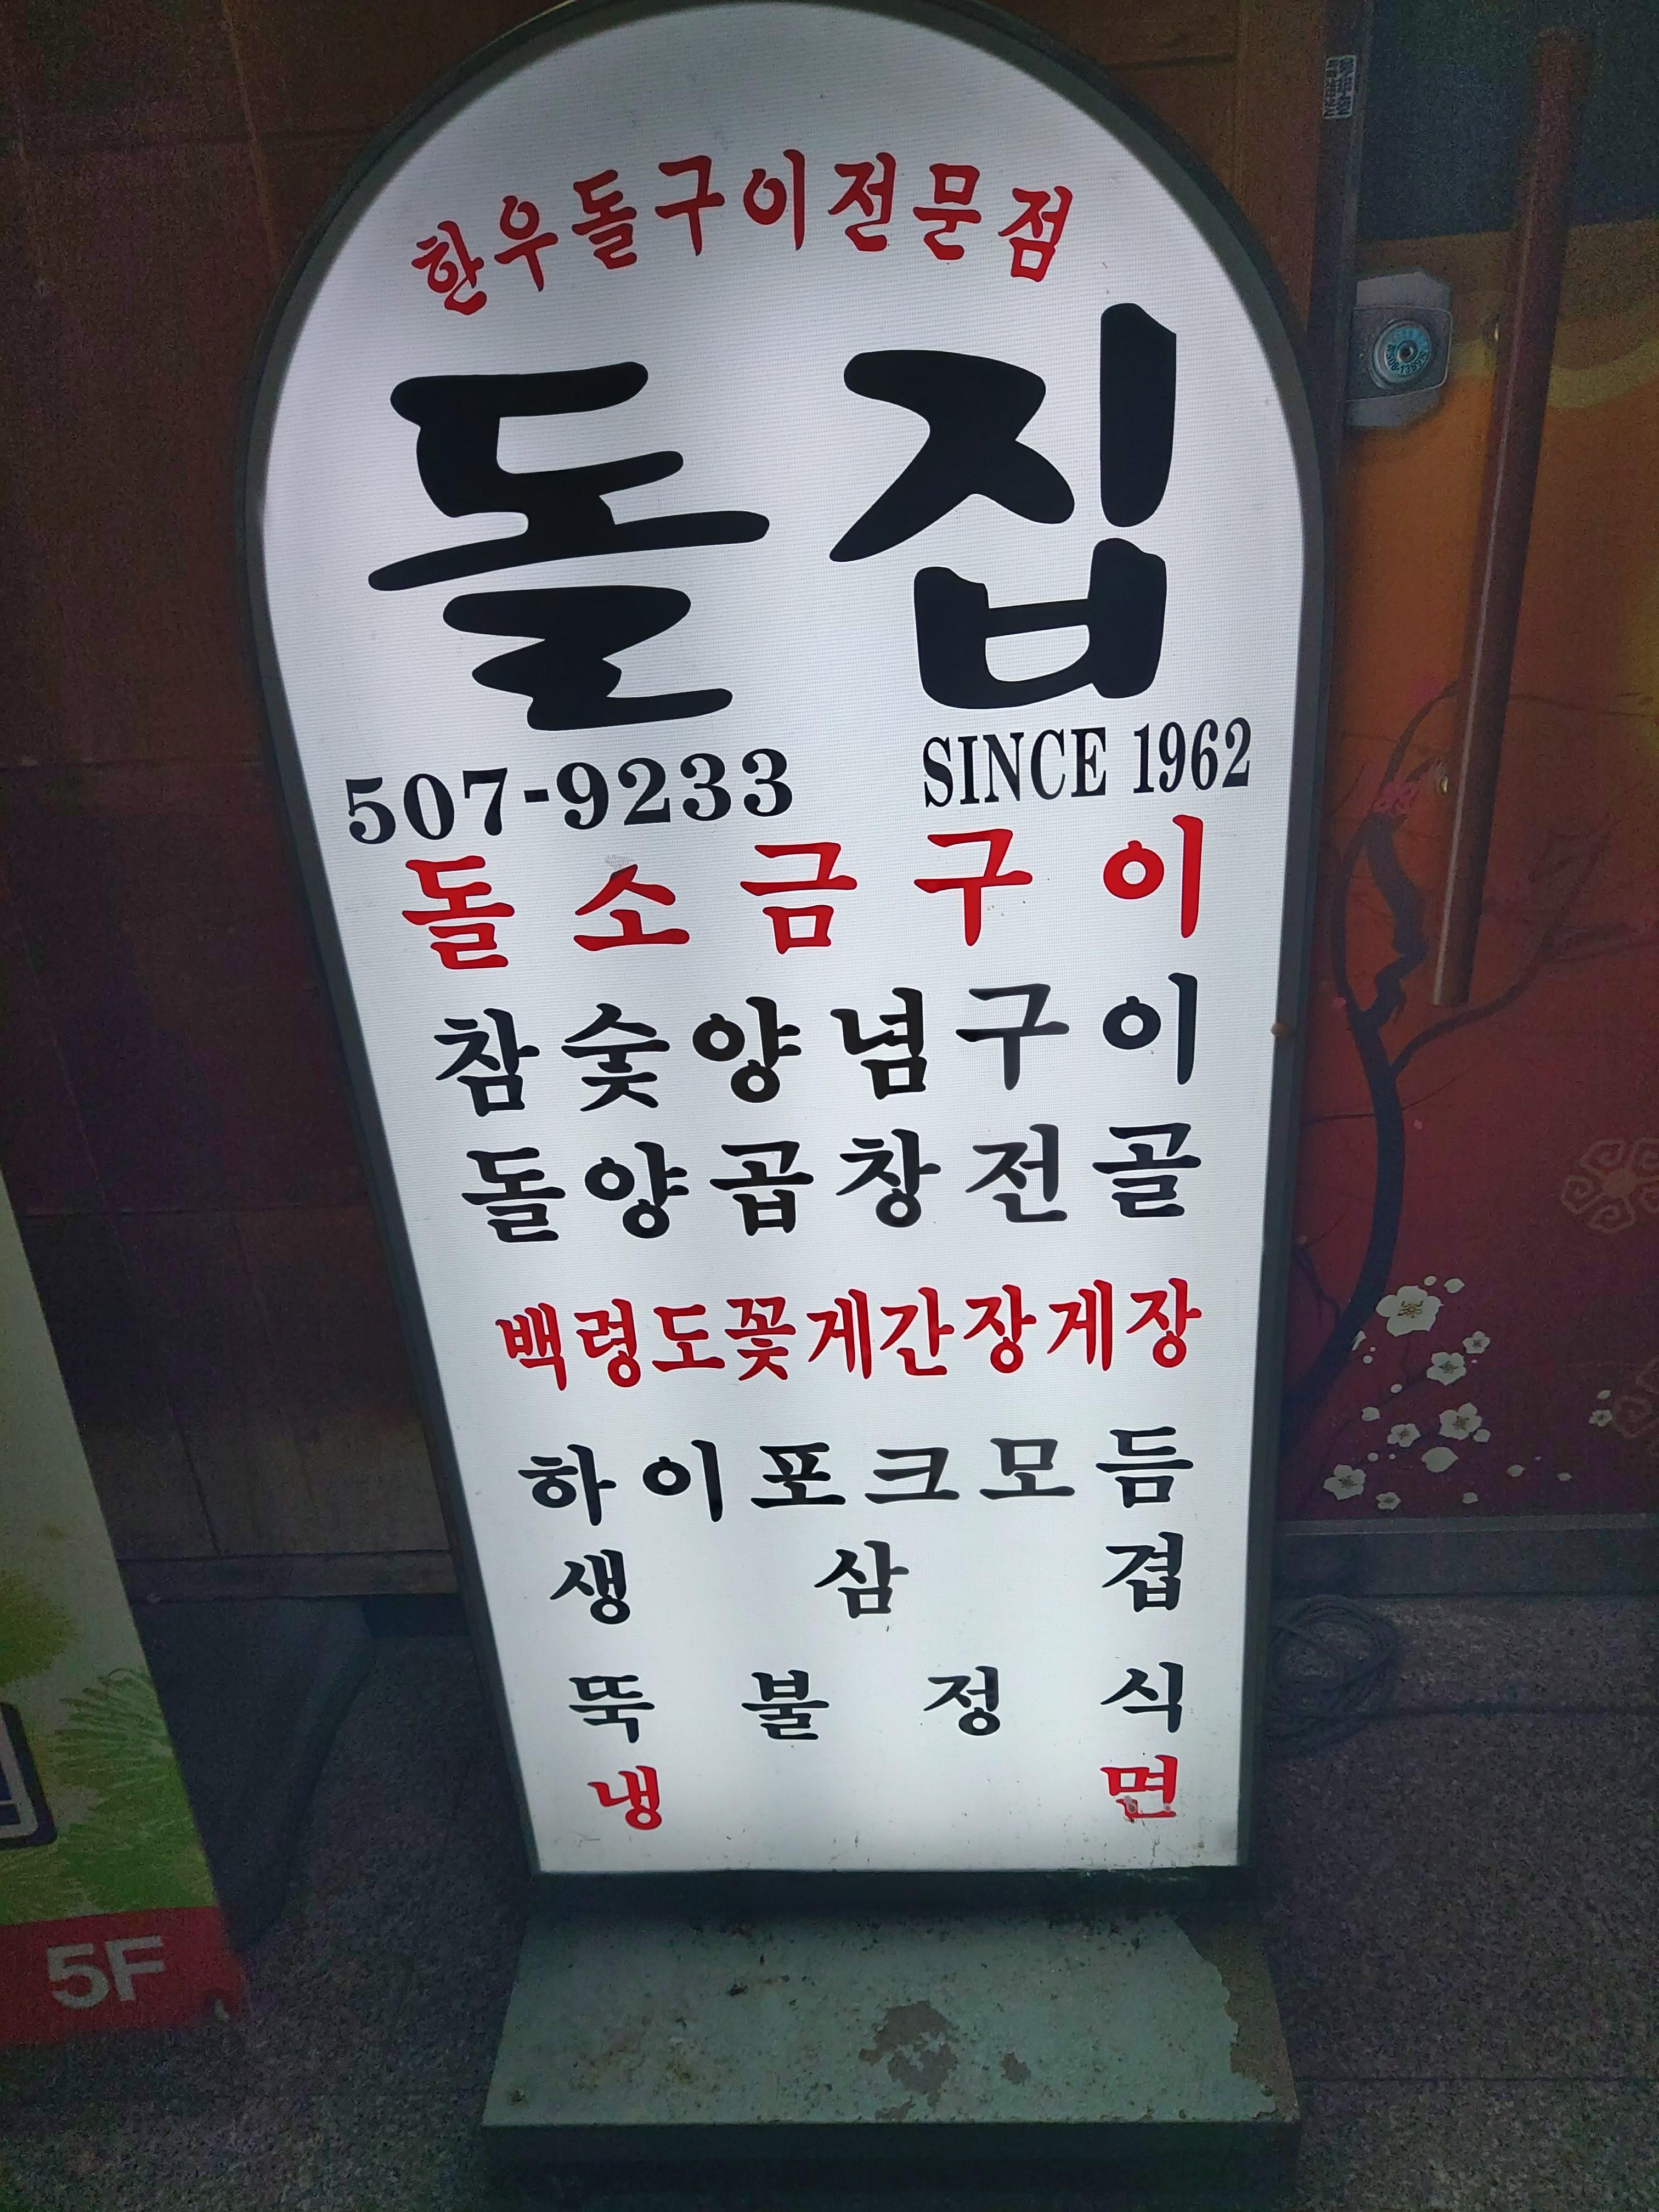 한우돌구이전문점
돌집
507-9233 SINCE 1962
돌소금구이
참숯양념구이
돌양곱창전골
백령도꽃게간장게장
하이포크모듬
생삼겹
뚝불정식
냉면
5F